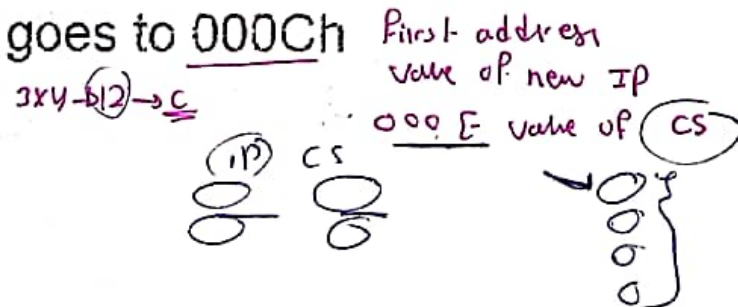 goes to 000Ch
First address
value of new IP
3x4 → 12 → C
000E value of CS
IP CS